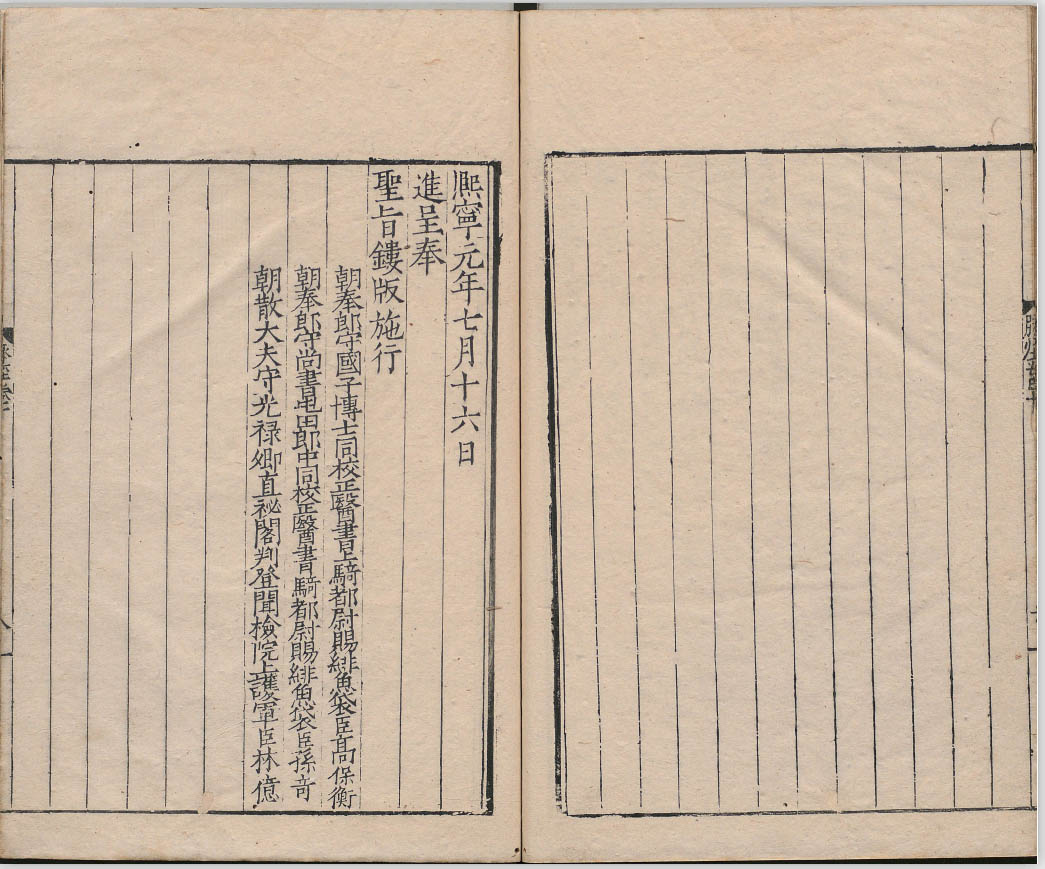 熈寧元年七月十六日
進呈奉
聖旨鏤版施行
朝奉郎守國子博士同校正醫書上騎都尉賜緋魚袋臣髙保衡
朝奉郎守尚書屯田郎中同校正醫書騎都尉賜緋魚袋臣孫竒
朝散大夫守光禄卿直祕閣判登聞檢院上護軍臣林億